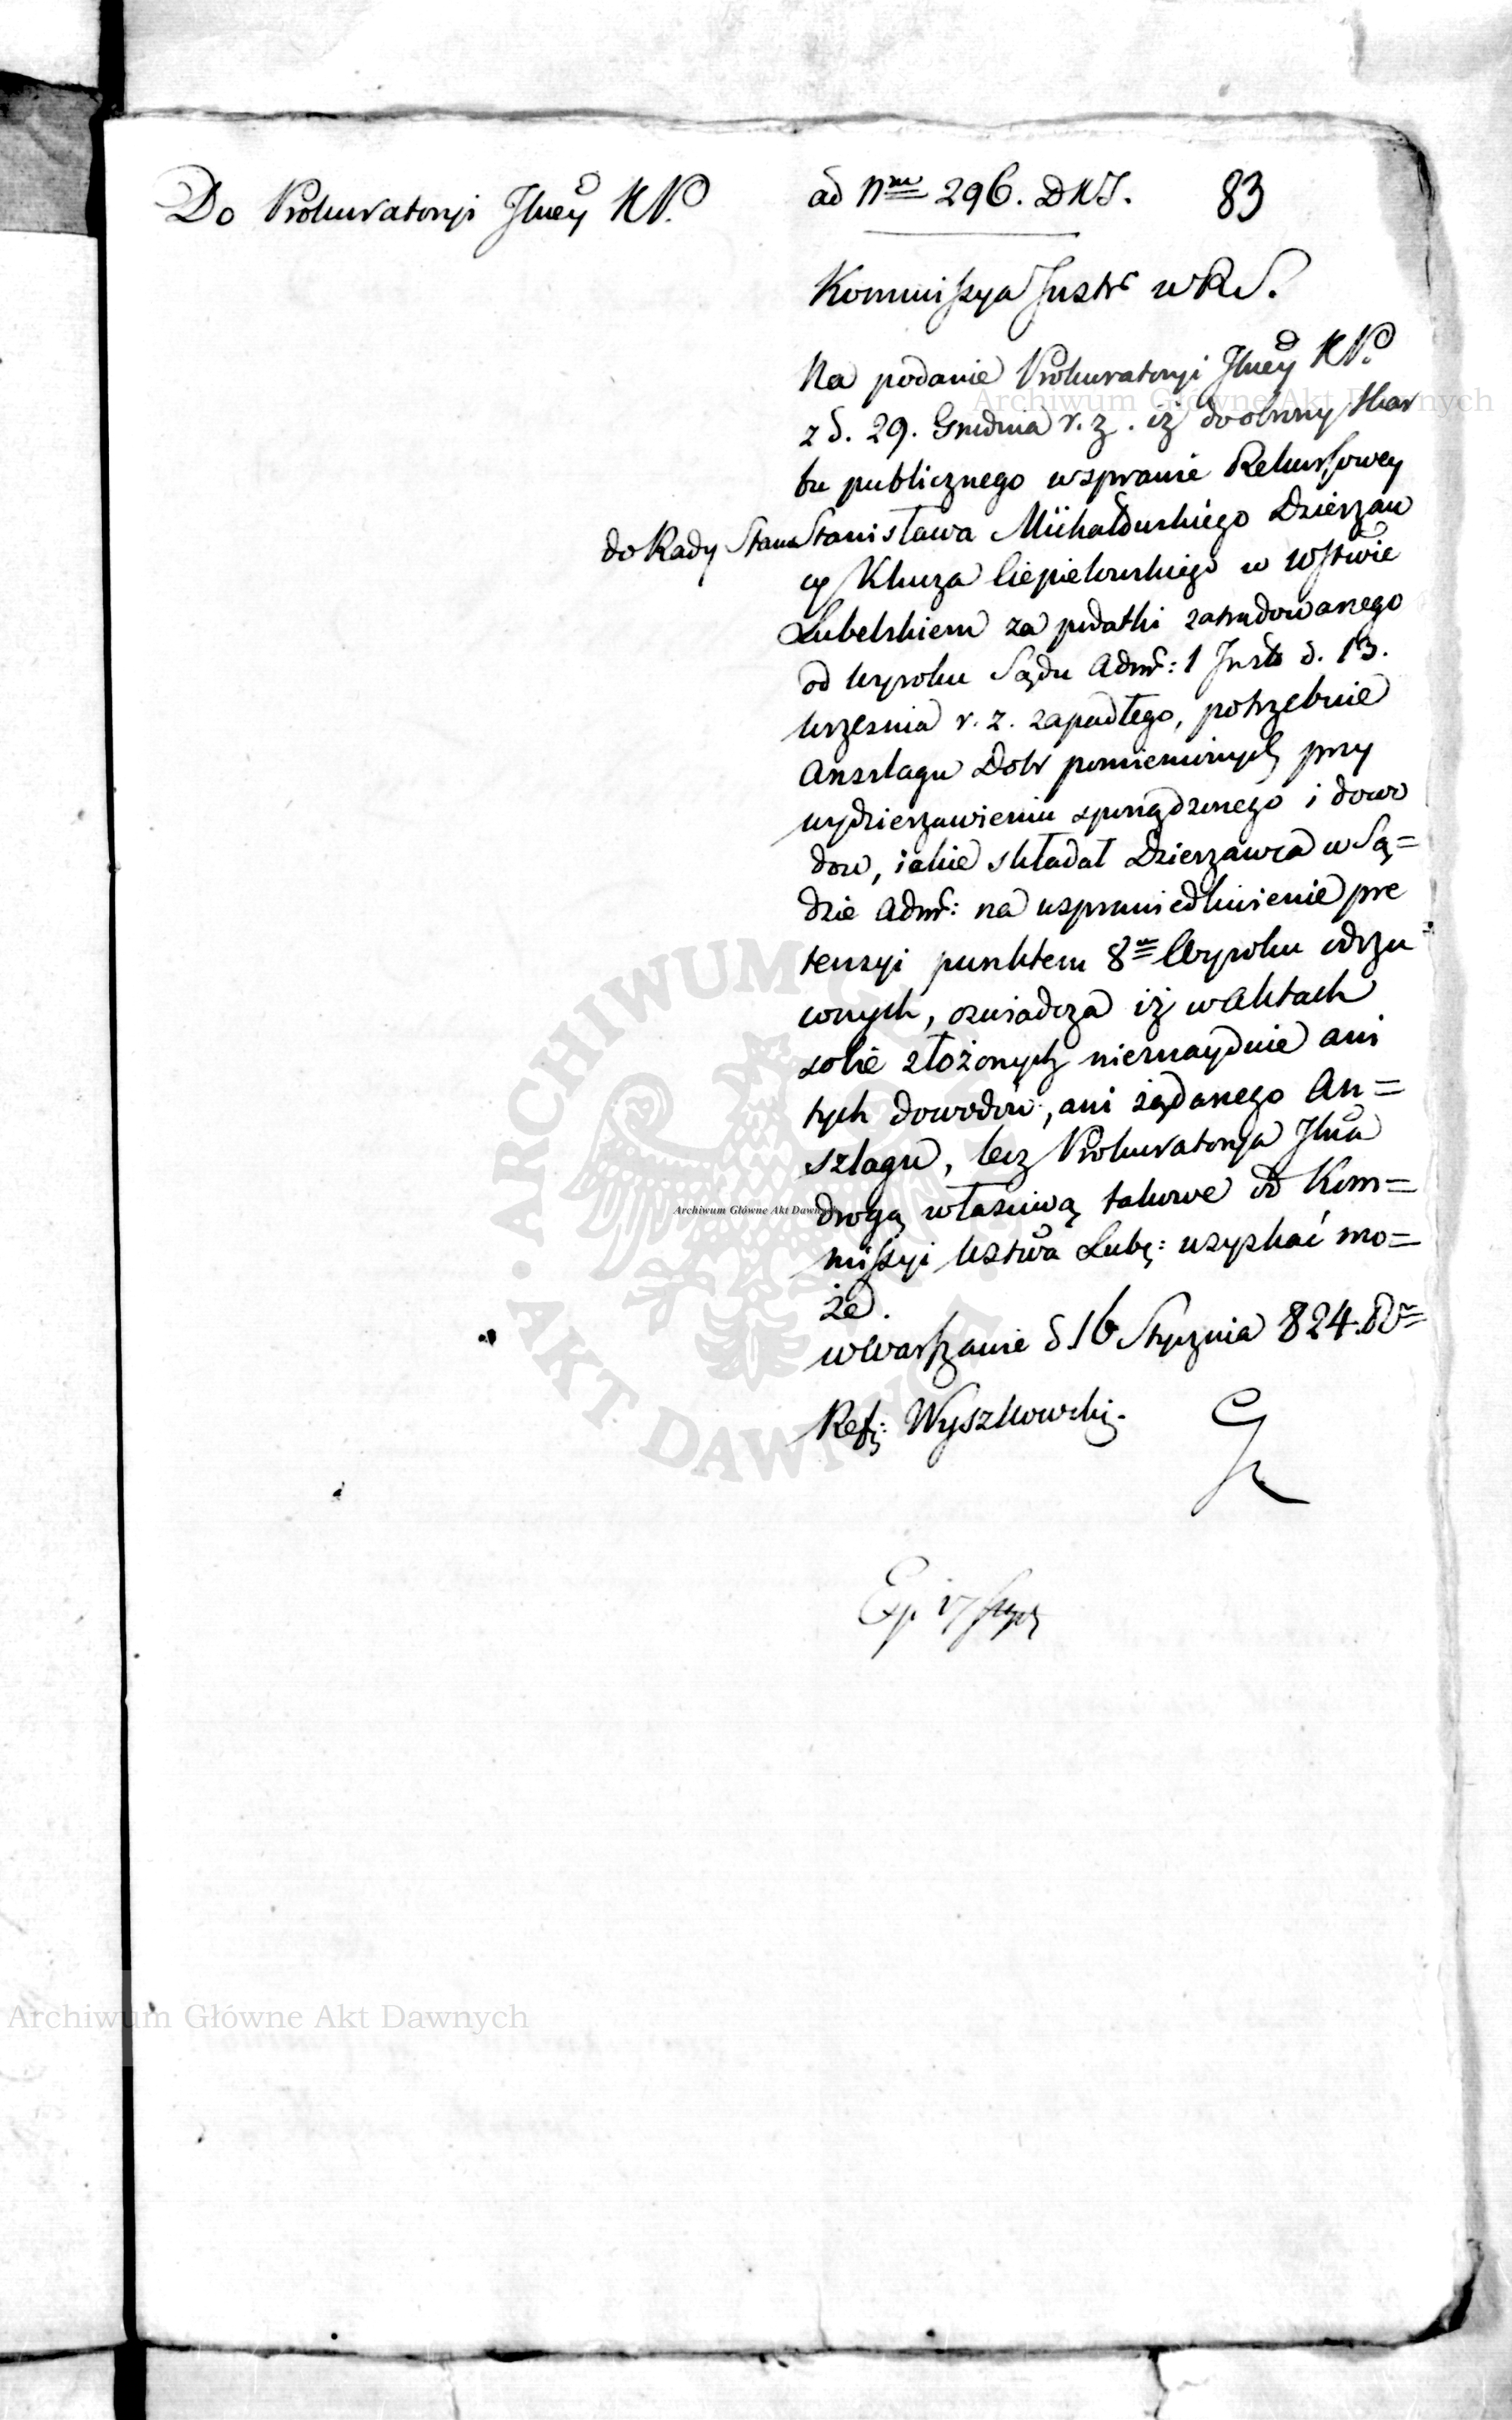 Do Prokuratoryi Jlney KP.
ad Nrm 296. DKS.
83
Kommissya Justc wRS.
Na podanie Prokuratoryi Jlney KP.
z d. 29. Grudnia r. z. iż do obrony Skar
bu publicznego w sprawie Rekursowey
do Rady Stanu
Stanisława Michałdurskiego Dzierżaw
cy Klucza Ciepielowskiego w Wstwie
Lubelskiem za podatki zatradowanego
od Wyroku Sądu Admr: 1 Jnst: d. 13.
Września r. z. zapadłego, potrzebuie
Anszlagu Dobr pomienionych przy
wydzierzawieniu sporządzonego i dowo
dow, iakie składał Dzierzawca w Są=
dzie Admr: na usprawiedliwienie pre
tensyi punktem 8m Wyroku odrzu
conych, oswiadcza iż w aktach
sobie złożonych nieznayduie ani
tych dowodow, ani żądanego An=
szlagu, lecz Prokuratorya Jlna
drogą właściwą takowe od Kom=
missyi Wstwa Lubę: uzyskać mo=
że.
w Warszawie d 16 Stycznia 824.
Ref: Wyszkowski.
Ex. 17 Stycz
Archiwum Główne Akt Dawnych
ARCHIWUM GŁÓWNE AKT DAWNYCH
Archiwum Główne Akt Dawnych
Archiwum Główne Akt Dawnych